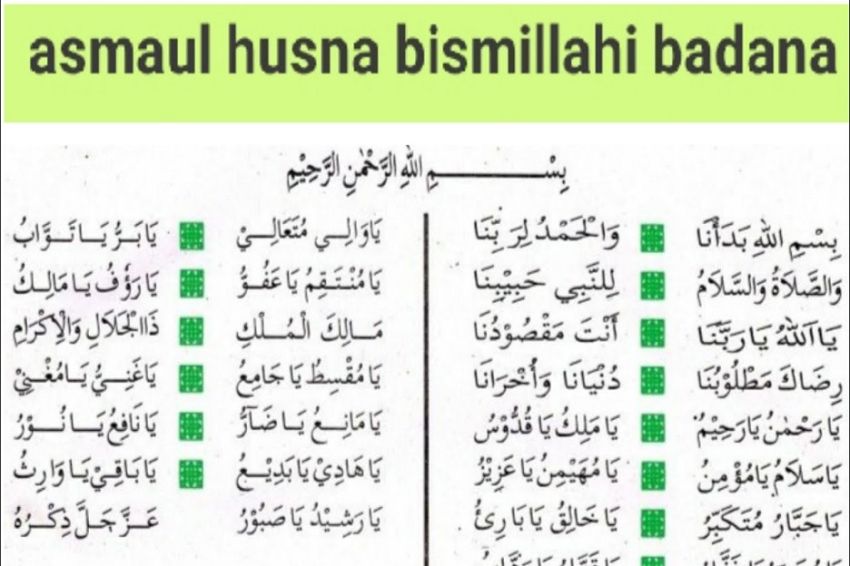 asmaul husna bismillahi badana
بِسْمِ اللهِ الرَّحْمٰنِ الرَّحِيْمِ
بِسْمِ اللهِ بَدَأْنَا وَالْحَمْدُ لِرَبِّنَا
وَالصَّلَاةُ وَالسَّلَامُ لِلنَّبِي حَبِيْبِنَا
يَا اَللهُ يَا رَبَّنَا أَنْتَ مَقْصُوْدُنَا
رِضَاكَ مَطْلُوْبُنَا دُنْيَانَا وَأُخْرَانَا
يَا رَحْمٰنُ يَا رَحِيْمُ يَا مَلِكُ يَا قُدُّوْسُ
يَا سَلَامُ يَا مُؤْمِنُ يَا مُهَيْمِنُ يَا عَزِيْزُ
يَا جَبَّارُ مُتَكَبِّرُ يَا خَالِقُ يَا بَارِئُ
يَا وَالِي مُتَعَالِيْ يَا بَرُّ يَا تَوَّابُ
يَا مُنْتَقِمُ يَا عَفُوُّ يَا رَؤُفُ يَا مَالِكُ
مَالِكَ الْمُلْكِ ذَا الْجَلَالِ وَالْإِكْرَامِ
يَا مُقْسِطُ يَا جَامِعُ يَا غَنِيُّ يَا مُغْنِيْ
يَا مَانِعُ يَا ضَآرُّ يَا نَافِعُ يَا نُوْرُ
يَا هَادِيْ يَا بَدِيْعُ يَا بَاقِيْ يَا وَارِثُ
يَا رَشِيْدُ يَا صَبُوْرُ عَزَّ جَلَّ ذِكْرُهُ